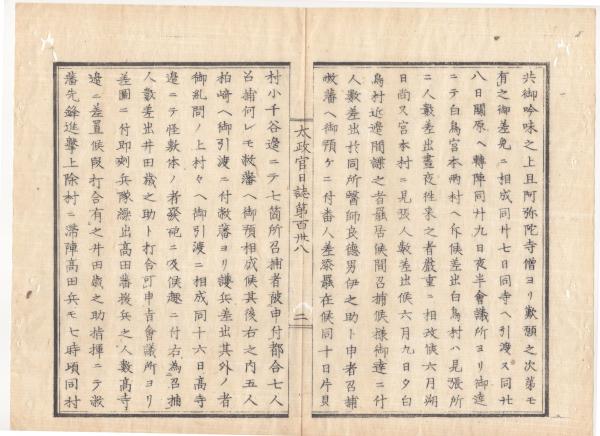 共御吟味之上且阿弥陀寺僧ヨリ歎願之次第モ
有之御差免ニ相成同廿七日同寺ヘ引渡ス同廿
八日關原ヘ轉陣同廿九日夜半會議所ヨリ御達
ニテ白鳥宮本兩村ヘ斥候差出白鳥村ヘ見張所
ニ人數差出晝夜往來之者嚴重ニ相改候六月朔
日尚又宮本村ニ見張人數差出候六月九日夕白
鳥村近邊間諜之者羅居候間召捕候様御達ニ付
人數差出於同所醫師良德男伊之助ト申者召捕
敝藩ヘ御預ケニ付番人差添羅在候同十日片貝
太政官日誌第百卅八
二
村小千谷邊ニテ七箇所召捕者被申付都合七人
召捕何レモ敝藩ヘ御預相成候其後右之内五人
柏崎ヘ御引渡ニ付敝藩ヨリ護兵差出其外ノ者
御糺問ノ上村々ヘ御引渡ニ相成同十六日高寺
邊ニテ怪敷体ノ者發砲ニ及候趣ニ付右為召捕
人數差出井田歳之助ト打合可申旨會議所ヨリ
差圖ニ付即刻兵隊繰出高田藩援兵之人數高寺
邊ニ差置候段打合有之井田歳之助指揮ニテ敝
藩先鋒進撃上除村ニ滞陣高田兵モ七時頃同村